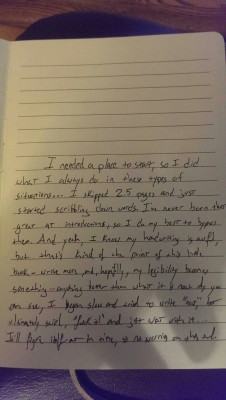 I needed a place to start, so I did
what I always do in these types of
situations... I skipped 2.5 pages and just
started scribbling down words. I've never been that
great at introductions, so I do my best to bypass
them. And yeah, I know my handwriting is awful,
but that's kind of the point of this little
book - write more, and, hopefully, my legibility becomes
something - anything better than what it is now. As you
can see, I began slow and tried to write "nice", but
ultimately said, "fuck it" and just went with it...
I'll figure itself out in time, so no worries on